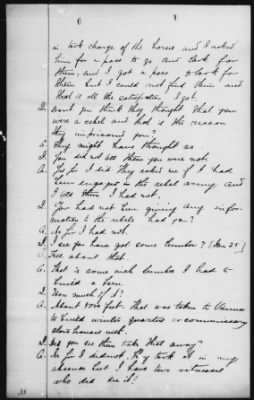 6
in took charge of the horses and I asked
him for a pass to go and look for
them, and I got a pass & look for
them but I could not find them and
that is all the satisfaction I got.
Q. Dont you think they thought that you
were a rebel and that is the reason
they imprisoned you?
A. They might have thought so.
Q. You did not tell them you were not.
A. Yes Sir I did They asked me if I had
been engaged in the rebel army and
I told them I had not.
Q. You had not been giving any infor-
mation to the rebels had you?
A. No Sir I had not.
Q. I see you have got some lumber? [Item 25]
Tell about that.
A. That is some oak lumber I had to
build a barn.
Q. How much of it?
A. About 4000 feet. That was taken to Vienna
to build winter quarters or commissary
store houses with.
Q. Did you see them take that away?
A. No Sir I did not. They took it in my
absence but I have two witnesses
who did see it?
33